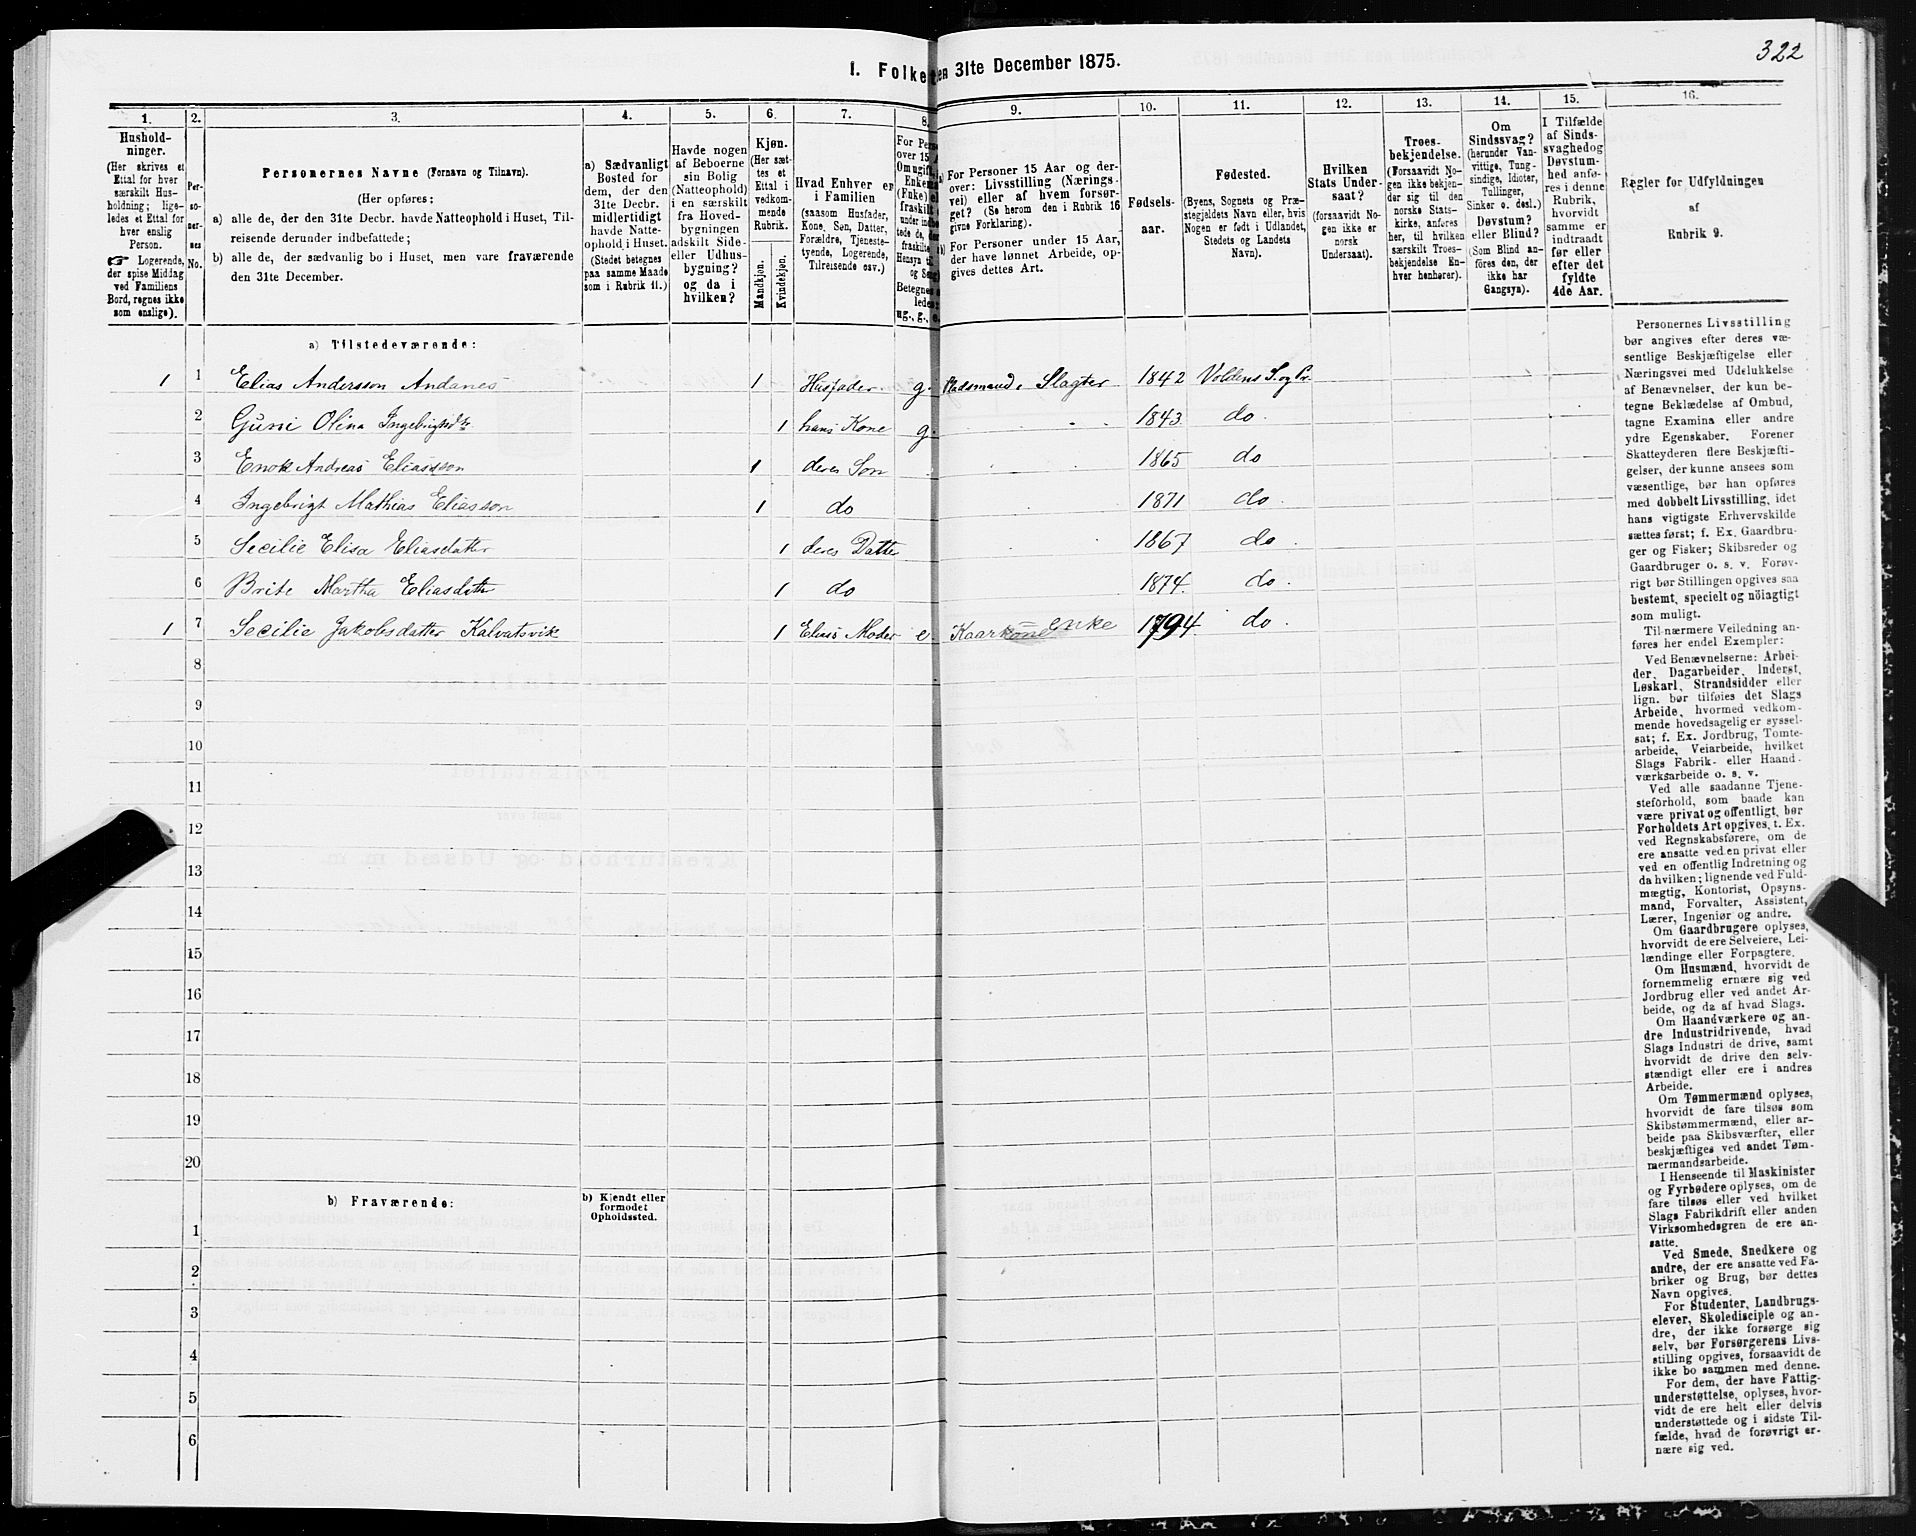 322
1. Folke en 31te December 1875.
1. 2. 3. 4. 5. 6. 7. 8. 9. 10. 11. 12. 13. 14. 15. 16.
Hushold-
ninger.
(Her skrives et
Ettal for hver
særskilt Hus-
holdning; lige-
ledes et Ettal for
hver enslig
Person.
☞ Logerende,
der spise Middag
ved Familiens
Bord, regnes ikke
som enslige).
Per-
so-
ner-
nes
No.
Personernes Navne (Fornavn og Tilnavn).
(Her opføres:
a) alle de, der den 31te Decbr. havde Natteophold i Huset, Til-
reisende derunder indbefattede;
b) alle de, der sædvanlig bo i Huset, men vare fraværende
den 31te December.
a) Sædvanligt
Bosted for
dem, der den
31te Decbr.
midlertidigt
havde Natte-
ophold i Huset.
(Stedet betegnes
paa samme Maade
som i Rubrik 11.)
Havde nogen
af Beboerne
sin Bolig
(Natteophold)
i en særskilt
fra Hoved-
bygningen
adskilt Side-
eller Udhus-
bygning?
og da i
hvilken?
Kjøn.
(Her sæt-
tes et
Ettal i
vedkom-
mende
Rubrik.
Mandkjøn.
Kvindekjøn.
Hvad Enhver er
i Familien
(saasom Husfader,
Kone, Søn, Datter,
Forældre, Tjeneste-
tyende, Logerende,
Tilreisende osv.)
For Pers
over 15
Omgift,
Enkem
(Enke) el
fraskilt
under indbe
tede de, der
fraskilte
Hensyn til
og Seng
Betegnes
ledes:
ug., g., e.
a) For Personer 15 Aar og der-
over: Livsstilling (Nærings-
vei) eller af hvem forsør-
get? (Se herom den i Rubrik 16
givne Forklaring).
b) For Personer under 15 Aar,
der have lønnet Arbeide, op-
gives dettes Art.
Fødsels-
aar.
Fødested.
(Byens, Sognets og Præ-
stegjeldets Navn eller, hvis
Nogen er født i Udlandet,
Stedets og Landets
Navn).
Hvilken
Stats Under-
saat?
(forsaavidt No-
gen ikke er
norsk
Undersaat).
Troes-
bekjendelse.
(Forsaavidt No-
gen ikke bekjen-
der sig til den
norske Stats-
kirke, anføres
her, til hvilken
særskilt Troes-
bekjendelse En-
hver henhører).
Om
Sindssvag?
(herunder Van-
vittige, Tung-
sindige, Idioter,
Tullinger,
Sinker o. desl.)
Døvstum?
eller Blind?
(Som Blind an-
føres den, der
ikke har
Gangsyn).
I Tilfælde
af Sinds-
svaghed og
Døvstum-
hed anfø-
res i denne
Rubrik,
hvorvidt
samme er
indtraadt
før eller
efter det
fyldte
4de Aar.
Regler for Udfyldningen
af
Rubrik 9.
a) Tilstedeværende:
1 1 Elias Andersson Andanes 1 Husfader g. Pladsmand, Slagter 1842 Voldens S. og Pr
2 Guni Olina Ingebrigtsdtr 1 hans Kone g. 1843 do.
3 Enok Andreas Eliasson 1 deres Søn 1865 do
4 Ingebrigt Mathias Eliasson 1 do 1871 do.
5 Secilie Elisa Eliasdatter 1 deres Datter 1867 do.
6 Brite Martha Eliasdatter 1 do 1874. do.
1 7 Secilie Jakobsdatter Kalvatsvik 1 Elias Moder e. Kaarkone enke 1794 do.
8
9
10
11
12
13
14
15
16
17
18
19
20
b) Fraværende:
b) Kjendt eller
formodet
Opholdssted.
1
2
3
4
5
6
Personernes Livsstilling
bør angives efter deres væ-
sentlige Beskjæftigelse eller
Næringsvei med Udelukkelse
af Benævnelser, der kun be-
tegne Beklædelse af Ombud,
tagne Examina eller andre
ydre Egenskaber. Forener
Skatteyderen flere Beskjæfti-
gelser, der kunne ansees som
væsentlige, bør han opføres
med dobbelt Livsstilling, idet
hans vigtigste Erhvervskilde
sættes først; f. Ex. Gaardbru-
ger og Fisker; Skibsreder og
Gaardbruger o. s. v. Forøv-
rigt bør Stillingen opgives saa
bestemt, specielt og nöiagtigt
som muligt.
Til nærmere Veiledning an-
føres her endel Exempler:
Ved Benævnelserne: Arbei-
der, Dagarbeider, Inderst,
Løskarl, Strandsidder eller
lign. bør tilføies det Slags
Arbeide, hvormed vedkom-
mende hovedsagelig er syssel-
sat; f. Ex. Jordbrug, Tomte-
arbeide, Veiarbeide, hvilket
Slags Fabrik- eller Haand-
værksarbeide o. s. v.
Ved alle saadanne Tjene-
steforhold, som baade kan
være privat og offentligt, bør
Forholdets Art opgives, t. Ex.
ved Regnskabsførere, om de
ere ansatte ved en privat eller
ved en offentlig Indretning og
da hvilken; lignende ved Fuld-
mægtig, Kontorist, Opsyns-
mand, Forvalter, Assistent,
Lærer, Ingeniør og andre.
Om Gaardbrugere oplyses,
hvorvidt de ere Selveiere, Lei-
lændinge eller Forpagtere.
Om Husmænd, hvorvidt de
fornemmelig ernære sig ved
Jordbrug eller ved andet Ar-
beide, og da af hvad Slags.
Om Haandværkere og an-
dre Industridrivende, hvad
Slags Industri de drive, samt
hvorvidt de drive den selv-
stændigt eller ere i andres
Arbeide.
Om Tømmermænd oplyses,
hvorvidt de fare tilsøs som
Skibstømmermænd, eller ar-
beide paa Skibsværfter, eller
beskjæftiges ved andet Tøm-
mermandsarbeide.
I Henseende til Maskinister
og Fyrbødere oplyses, om de
fare tilsøs eller ved hvilket
Slags Fabrikdrift eller anden
Virksomhedsgren de ere an-
satte.
Ved Smede, Snedkere og
andre, der ere ansatte ved Fa-
briker og Brug, bør dettes
Navn opgives.
For Studenter, Landbrugs-
elever, Skoledisciple og an-
dre, der ikke forsørge sig
selv, bør Forsørgerens Livs-
stilling opgives, forsaavidt de
ikke bo sammen med denne.
For dem, der have Fattig-
understøttelse, oplyses, hvor-
vidt de ere helt eller delvis
understøttede og i sidste Til-
fælde, hvad de forøvrigt er-
nære sig ved.